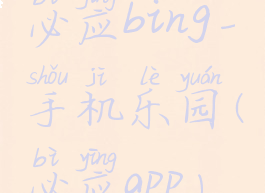 必应bing-
shǒu jī lè yuán
手机乐园(
bì yīng
必应app)